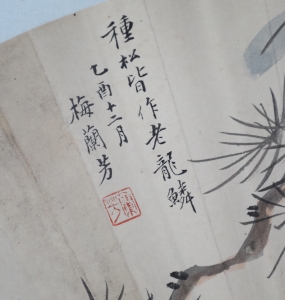 種松皆作老龍鱗
乙酉十二月
梅蘭芳